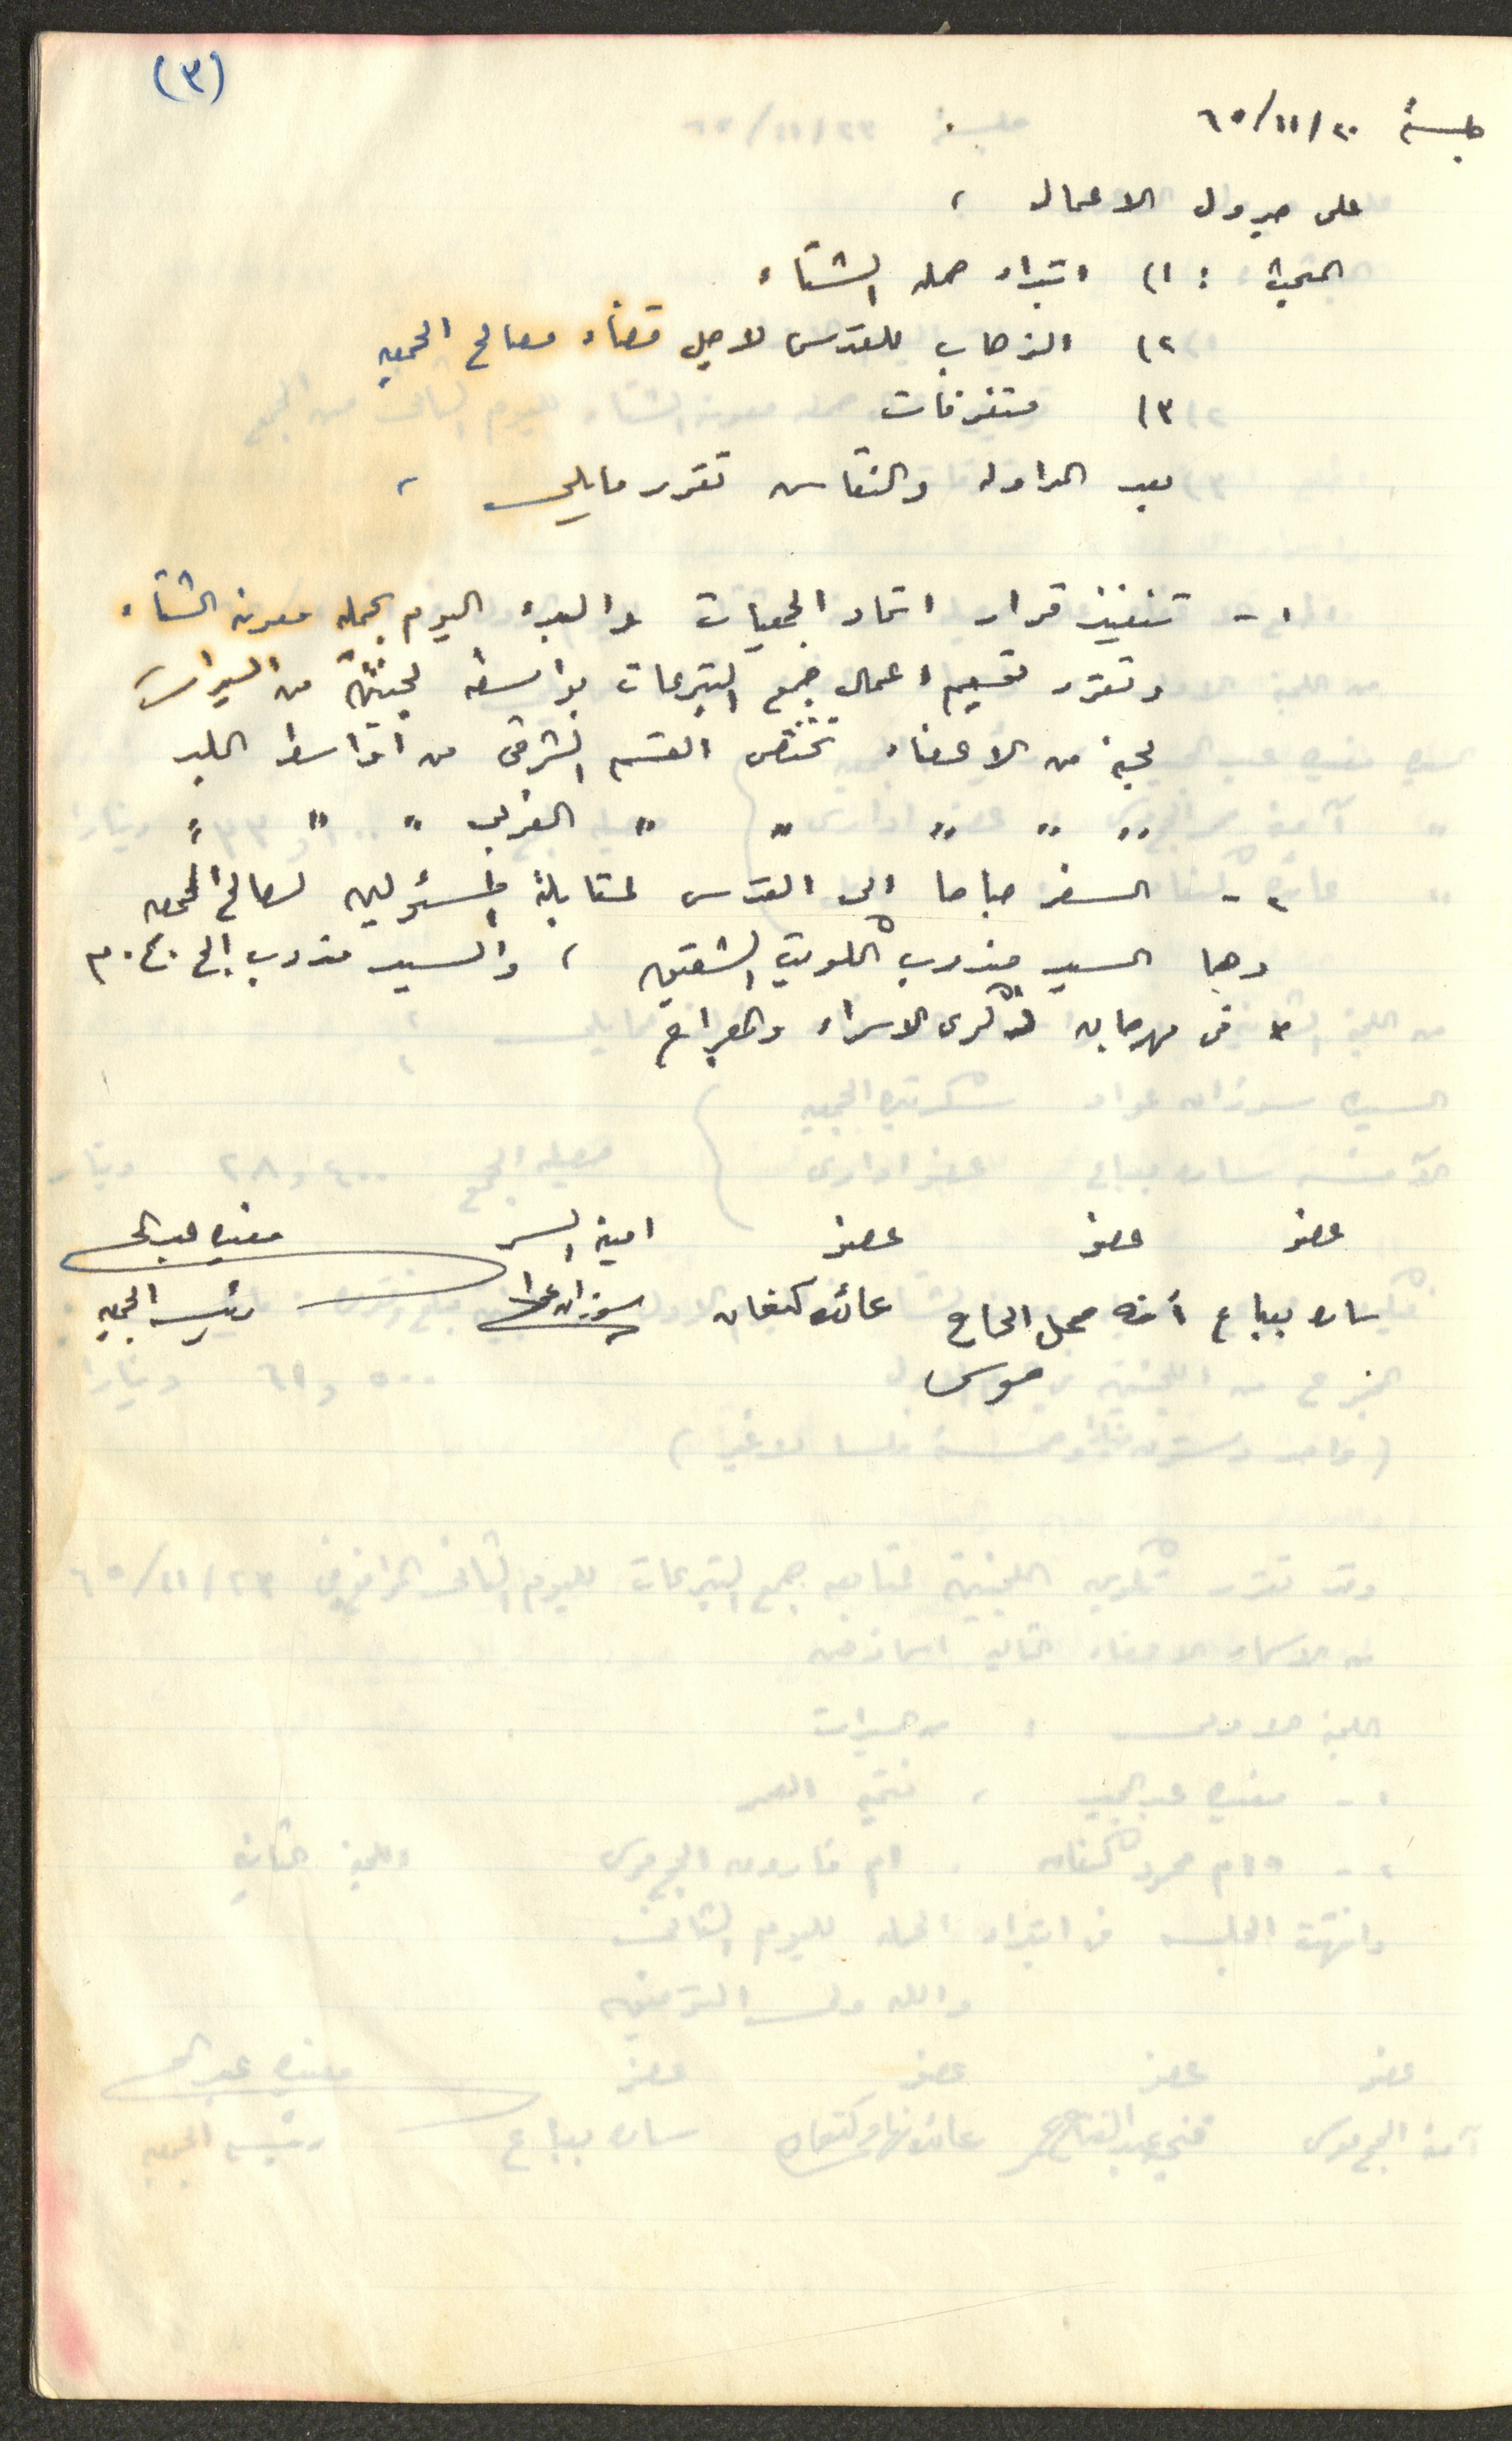 (٣)
جلسة ٢٠/١١/٦٥
على جدول الاعمال ،
التحية : ١) ابتداء حملة الشتاء
٢) الذهاب للقدس لاجل قضاء مصالح الجمعيه
٣) متفرقات
بعد المداوله والنقاش تقرر مايلي ،
١- تنفيذ قرار اتحاد الجمعيات والبدء اليوم بحملة معونة الشتاء
وتقرر تقسيم اعمال جمع التبرعات بواسطة لجنتين من السيدات
لجنة من الأعضاء تختص القسم الشرقي من أواسط البلد
" " " " " الغربي " " "
٢- السفر صباحا الى القدس لمقابلة المسؤولين لصالح الجمعيه
وهما السيد مندوب الكويت الشقيق ، والسيد مندوب ال ج.ع.م
* في مهرجان لذكرى الاسراء والمعراج
عضو عضو عضو امينة السر مفيده عبد
ساره بيباع أمنه محمد الحاج عائده كنعان سوزان عواد رئيسه الجمعيه
موسى